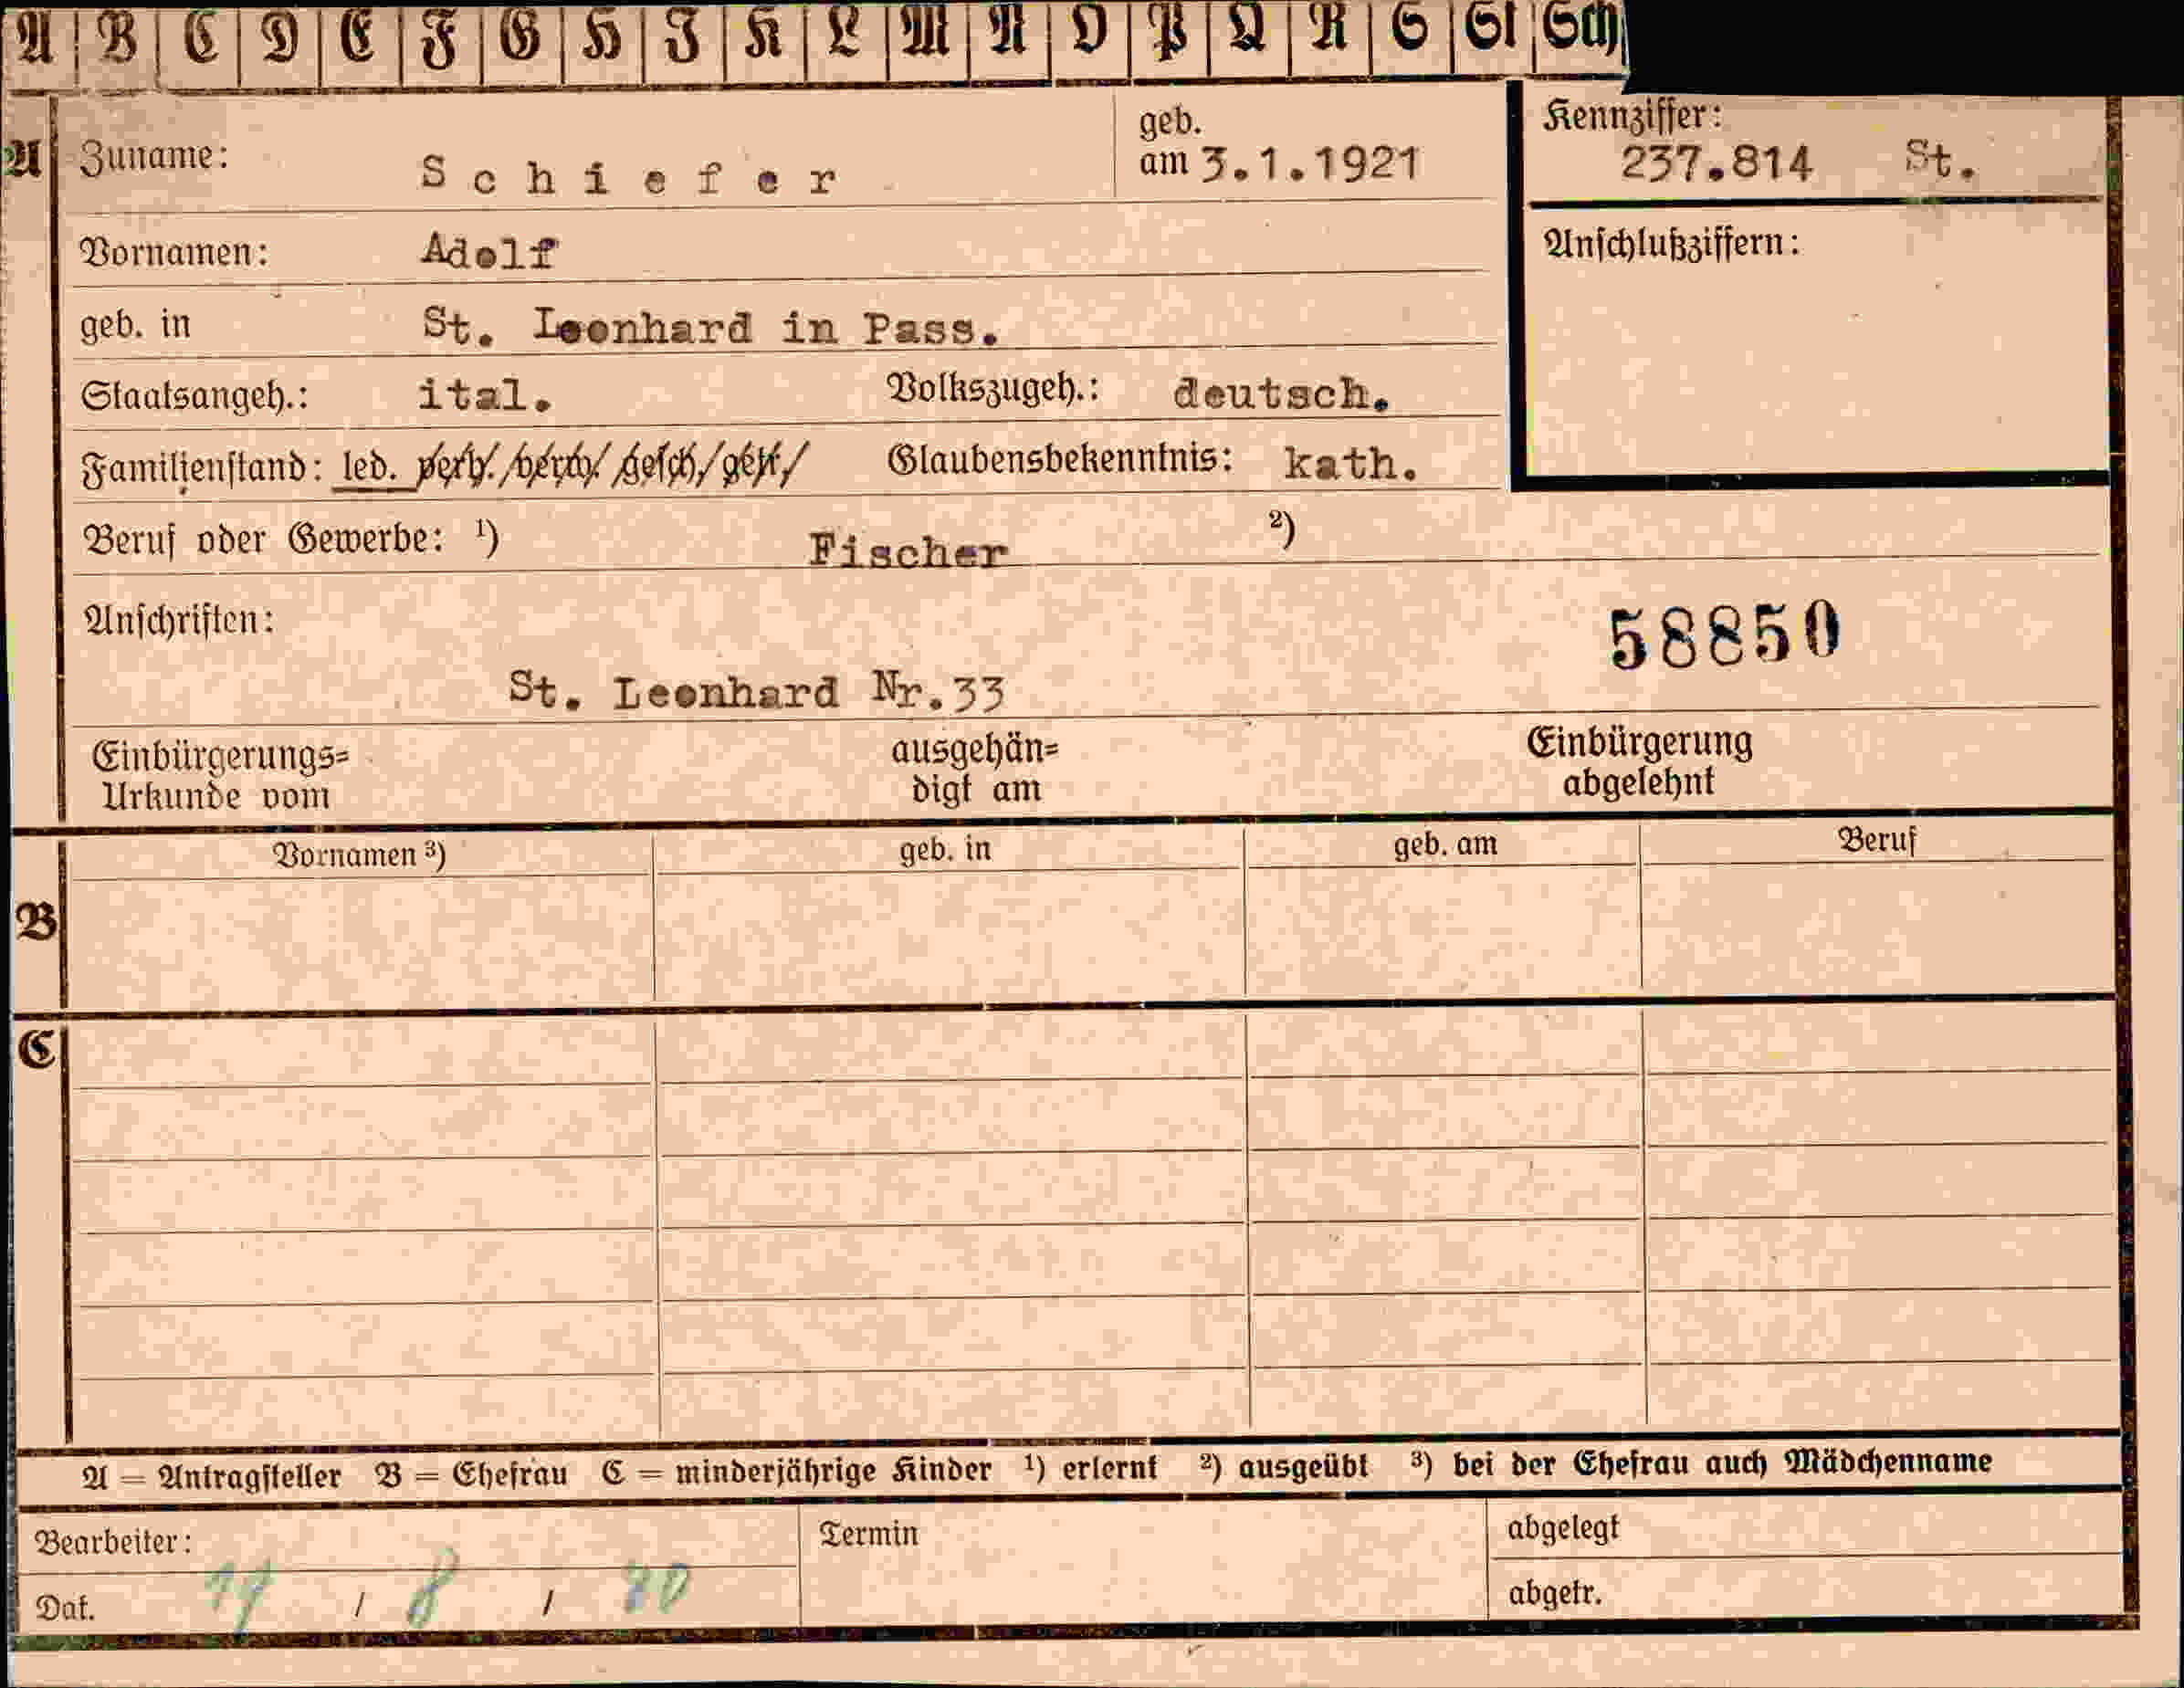 A B C D E F G H J K L M N O P Q R S St Sch
A Zuname: Schiefer geb. am 3.1.1921 Kennziffer: 237.814 St.
Vornamen: Adolf Anschlußziffern:
geb. in St. Leonhard in Pass.
Staatsangeh.: ital. Volkszugeh.: deutsch.
Familienstand: led. verh./verw./gesch./getr./ Glaubensbekenntnis: kath.
Beruf oder Gewerbe: ¹) Fischer ²)
Anschriften: 58850
St. Leonhard Nr.33
Einbürgerungs= ausgehän= Einbürgerung
Urkunde vom digt am abgelehnt
Vornamen ³) geb. in geb. am Beruf
B
C
A = Antragsteller B = Ehefrau C = minderjährige Kinder ¹) erlernt ²) ausgeübt ³) bei der Ehefrau auch Mädchenname
Bearbeiter: Termin abgelegt
Dat. / 8 / abgetr.